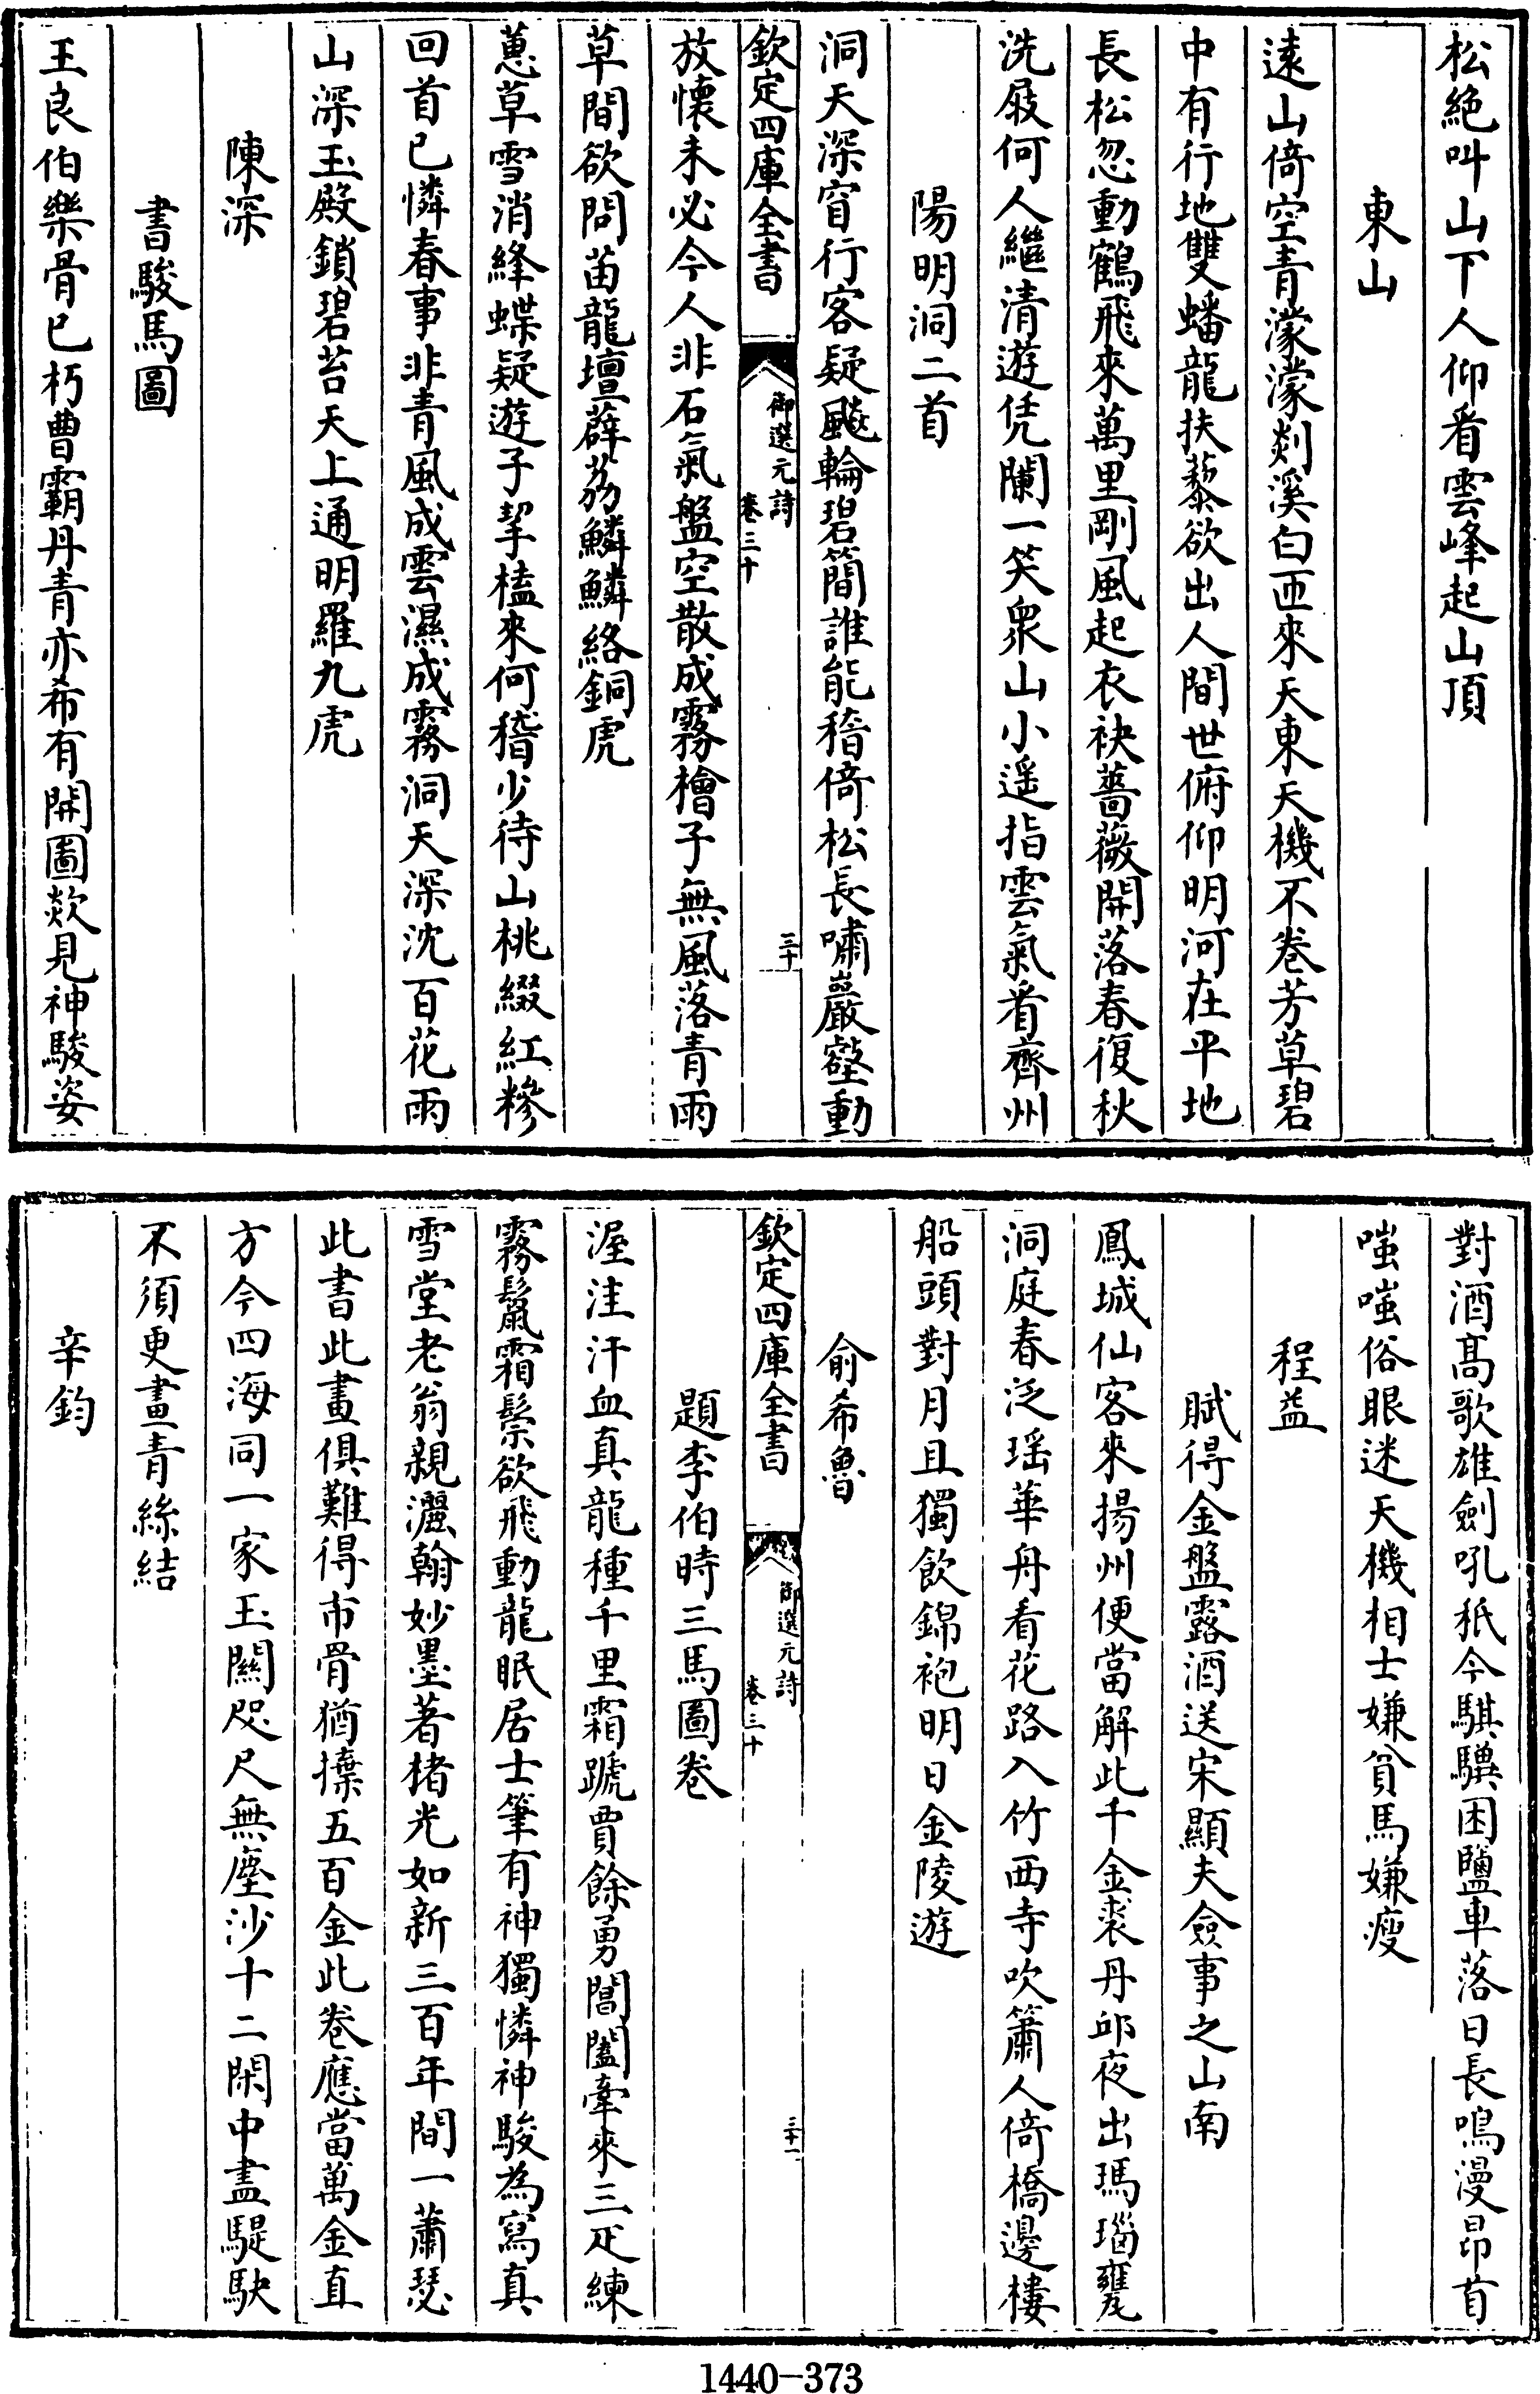 松絶叫山下人仰看雲峰起山頂
東山
遠山倚空青濛濛剡溪白匝來天東天機不卷芳草碧
中有行地雙蟠龍扶藜欲出人間世俯仰明河在平地
長松忽動鶴飛來萬里剛風起衣袂薔薇開落春復秋
洗屐何人繼清遊凭闌一笑衆山小遥指雲氣看齊州
陽明洞二首
洞天深窅行客疑飈輪碧簡誰能稽倚松長嘯巖壑動
欽定四庫全書
御選元詩
卷三十
三十
放懷未必今人非石氣盤空散成霧檜子無風落青雨
草間欲問苗龍壇薜荔鱗鱗絡銅虎
蕙草雪消絳蝶疑遊子挈榼來何稽少待山桃綴紅糝
回首已憐春事非青風成雲濕成霧洞天深沈百花雨
山深玉殿鎖碧苔天上通明羅九虎
陳深
書駿馬圖
王良伯樂骨已朽曹霸丹青亦希有開圖欻見神駿姿
對酒髙歌雄劍吼秖今騏驥困鹽車落日長鳴漫昂首
嗤嗤俗眼迷天機相士嫌貧馬嫌瘦
程益
賦得金盤露酒送宋顯夫僉事之山南
鳳城仙客來揚州便當解此千金裘丹邱夜出瑪瑙甕
洞庭春泛瑶華舟看花路入竹西寺吹簫人倚橋邊樓
船頭對月且獨飲錦袍明日金陵遊
俞希魯
欽定四庫全書
御選元詩
卷三十
三十一
題李伯時三馬圖卷
渥洼汗血真龍種千里霜蹏賈餘勇閶闔牽來三疋練
霧鬛霜鬃欲飛動龍眠居士筆有神獨憐神駿為寫真
雪堂老翁親灑翰妙墨著楮光如新三百年間一蕭瑟
此書此畫俱難得市骨猶㨿五百金此卷應當萬金直
方今四海同一家玉關咫尺無塵沙十二閑中盡騠駃
不須更畫青絲結
辛鈞
1440-373